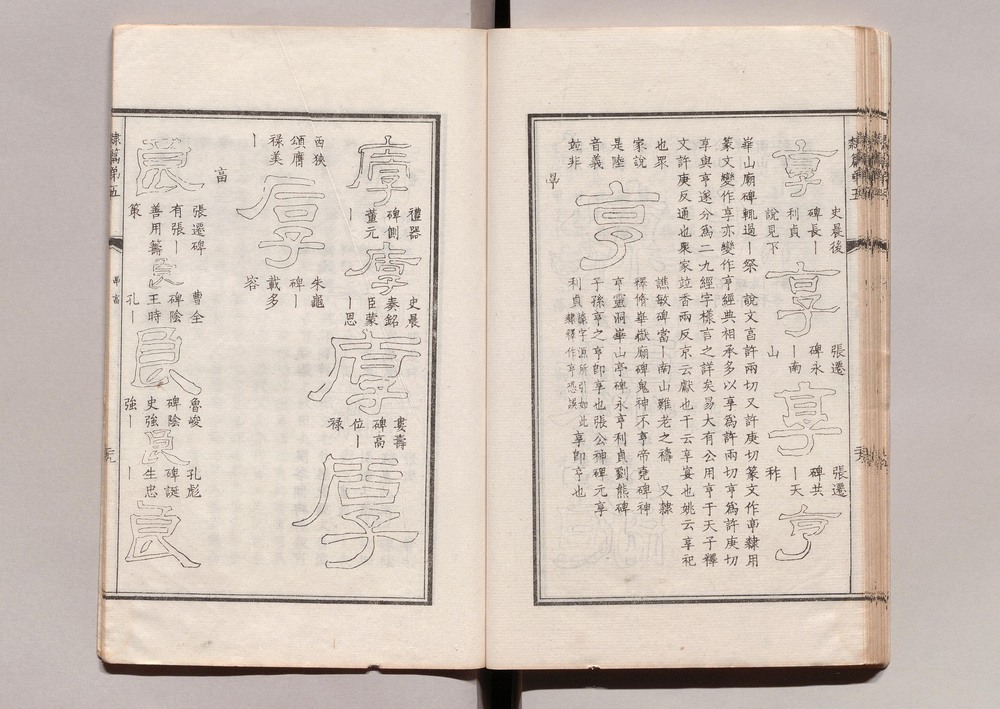 享
史晨後
碑長｜
利貞
說見下
享
張遷
碑永
｜南
山
享
張遷
碑共
｜天
祚
亨
崋山廟碑輒過｜祭　說文亯許兩切又許庚切篆文作亭隸用
篆文變作享亦變作亨經典相承多以享爲許兩切亨爲許庚切
享與亨遂分爲二九經字樣言之詳矣易大有公用亨于天子釋
文許庚反通也衆家竝香兩反京云獻也干云享宴也姚云享祀
也眾
家說
是陸
音義
竝非
亨
譙敏碑當｜南山難老之禱　又隸
釋脩崋嶽廟碑鬼神不亨帝堯碑神
亨靈洞崋山亭碑永亨利貞劉熊碑
子孫亨之亨卽享也張公神碑元享
利貞隸字源所引如此
隸釋作亨恐誤
享卽亨也
㫗
厚
禮器
碑側
董元
｜
厚
史晨
奏銘
臣蒙
｜恩
厚
婁壽
碑高
位｜
祿
厚
西狹
頌膺
祿美
｜
厚
朱龜
碑｜
載多
容
畐
良
張遷碑
有張｜
善用籌
策
良
曹全
碑陰
王時
孔｜
良
魯峻
碑陰
史強
強｜
良
孔彪
碑誕
生忠
｜
良
隸篇弟五